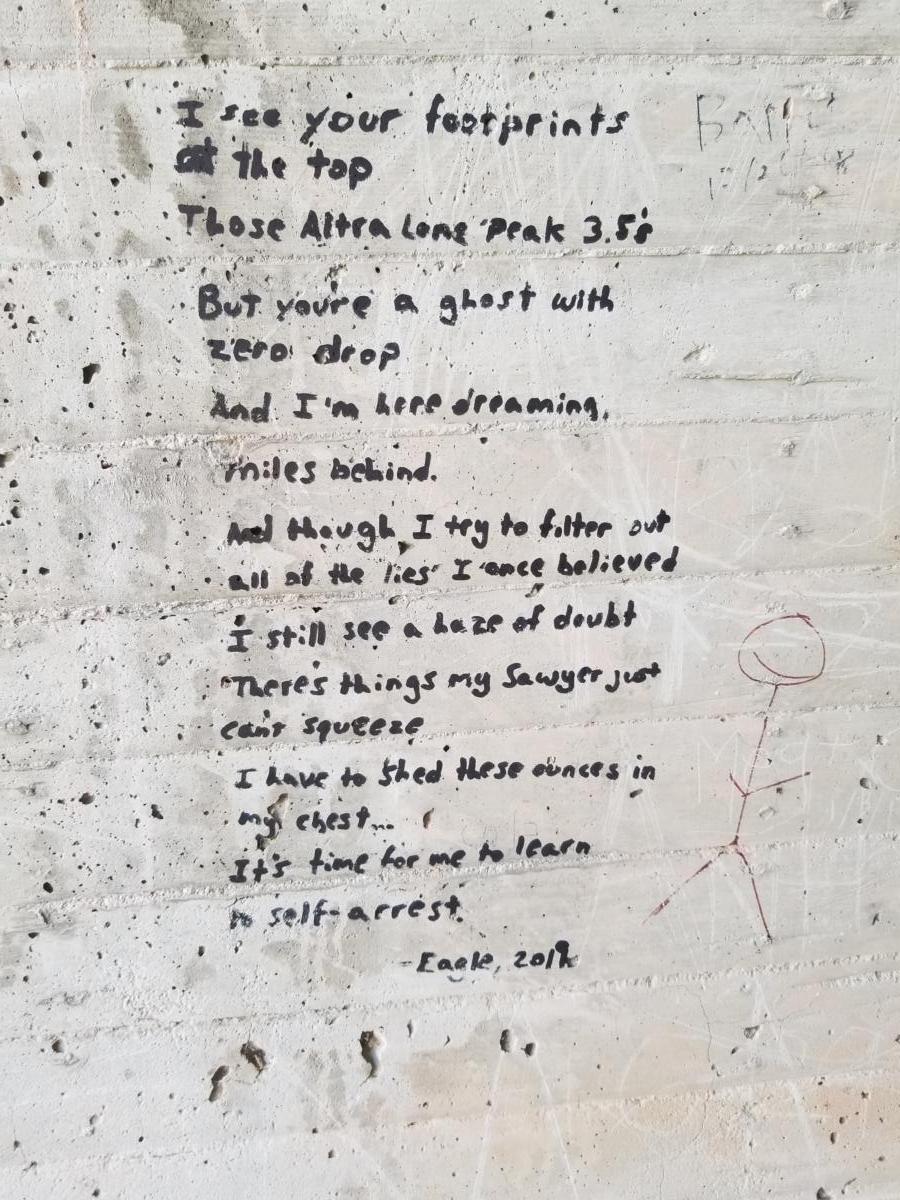 I see your footprints
at the top
Those Altra Lone Peak 3.5's
But you're a ghost with
zero drop
And I'm here dreaming,
miles behind.
And though I try to filter out
all of the lies I once believed
I still see a haze of doubt
There's things my Sawyer just
can't squeeze
I have to shed these ounces in
my chest...
It's time for me to learn
to self-arrest.
-Eagle, 2019